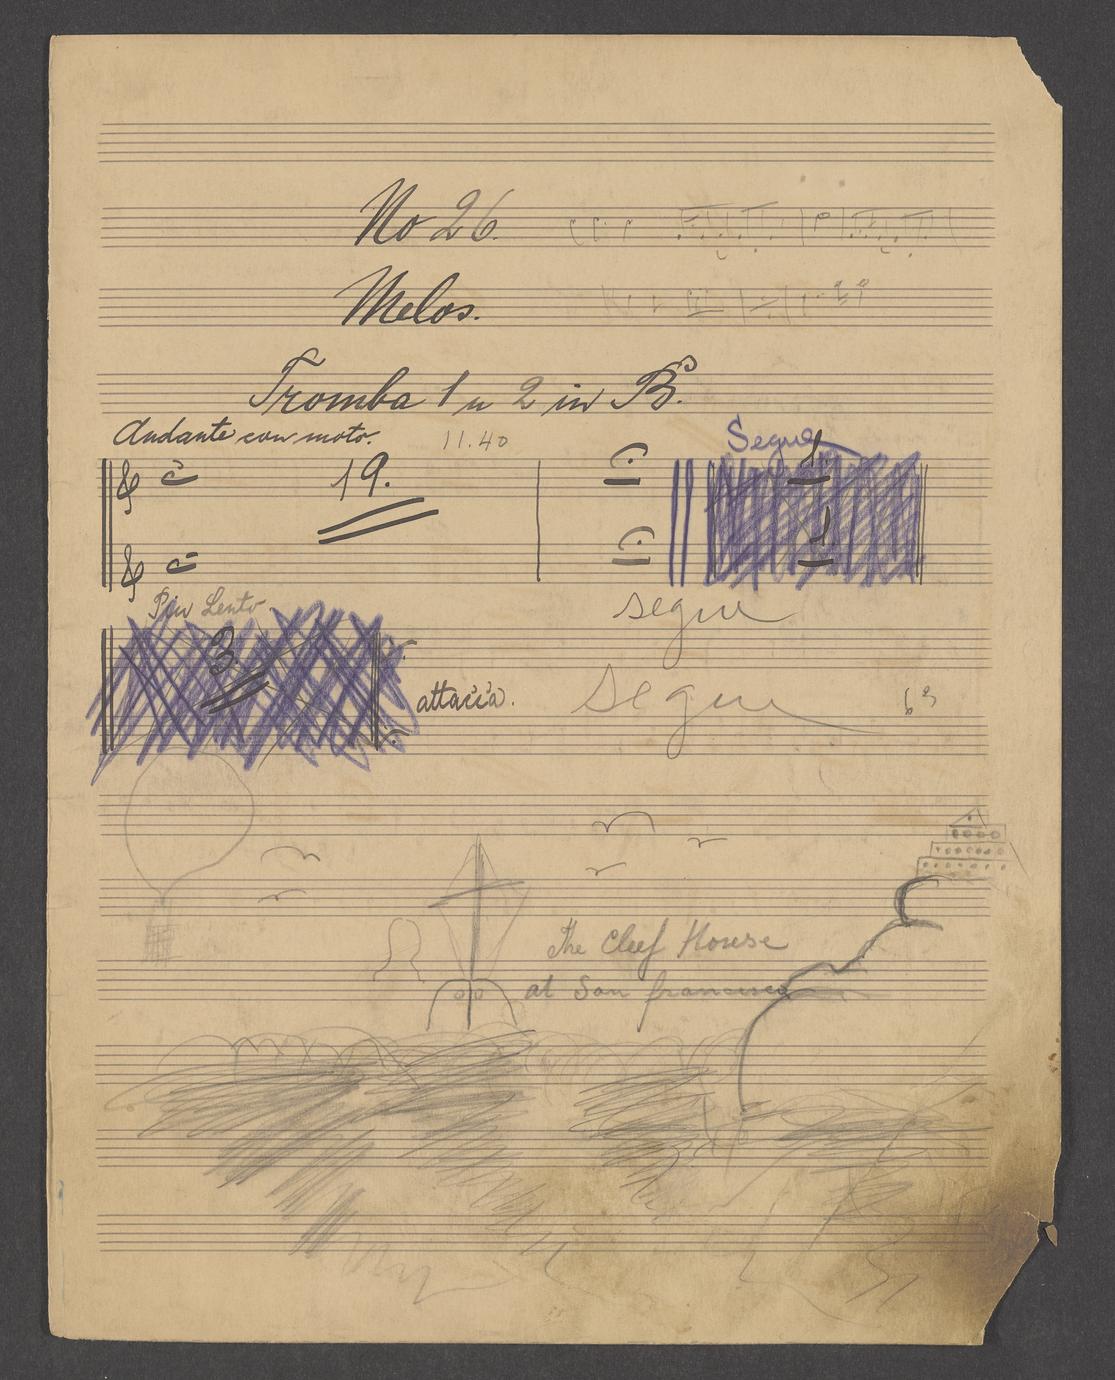 No 26.
Melos.
Tromba 1 u 2 in B.
Andante con moto. 11.40
Segue
19. 1
1
Piu Lento
segue
3
attacca. Segue
The Cleef House
at San francisco